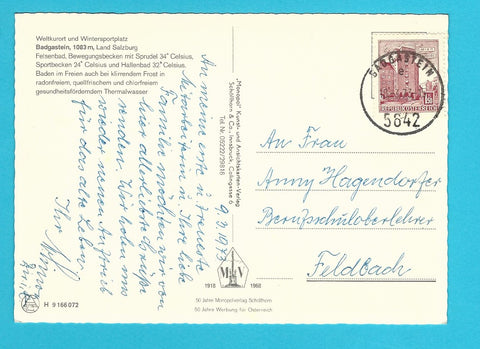 Weltkurort und Wintersportplatz
Badgastein, 1083 m, Land Salzburg
Felsenbad, Bewegungsbecken mit Sprudel 34° Celsius,
Sportbecken 24° Celsius und Hallenbad 32° Celsius.
Baden im Freien auch bei klirrendem Frost in
radonfreiem, quellfrischem und chlorfreiem
gesundheitsförderndem Thermalwasser
9. 3. 1973
An meine erste u. treueste
Mitarbeiterin u. Ihre liebe
Familie möchten wir von
hier allerliebste Grüße
senden. Wir holen uns
wieder neuen Auftrieb
für das alte Leben
Ihr
H 9166072
"Monopol" Kunst- und Ansichtskarten-Verlag
Schöllhorn & Co., Innsbruck, Collingasse 6
Tel. Nr. 05222/28818
MV
1918 1968
50 Jahre Monopolverlag Schöllhorn
50 Jahre Werbung für Österreich
BADGASTEIN
5642
REPUBLIK ÖSTERREICH
An Frau
Anny Hagendorfer
Berufsschuloberlehrer
Feldbach